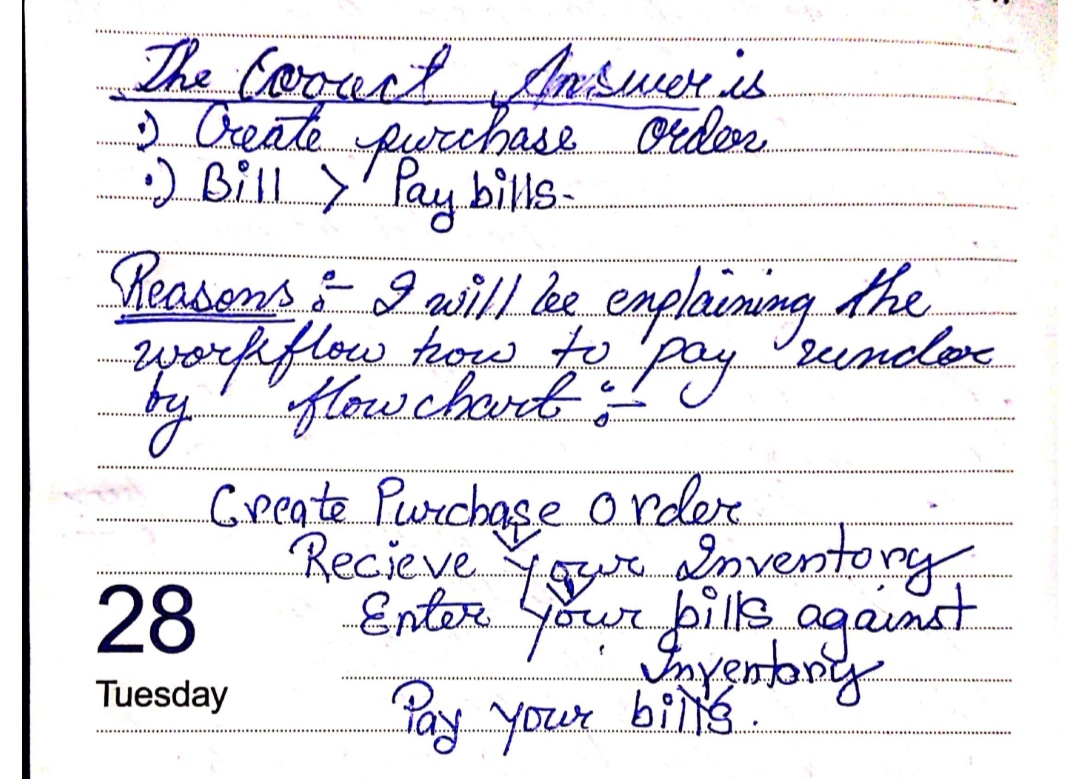 The Correct Answer is
:) Create purchase order
:) Bill > Pay bills-
Reasons :- I will be explaining the
workflow how to pay vendor
by flowchart :-
Create Purchase Order
Recieve your Inventory
Enter your bills against
Inventory
Pay your bills.
28
Tuesday